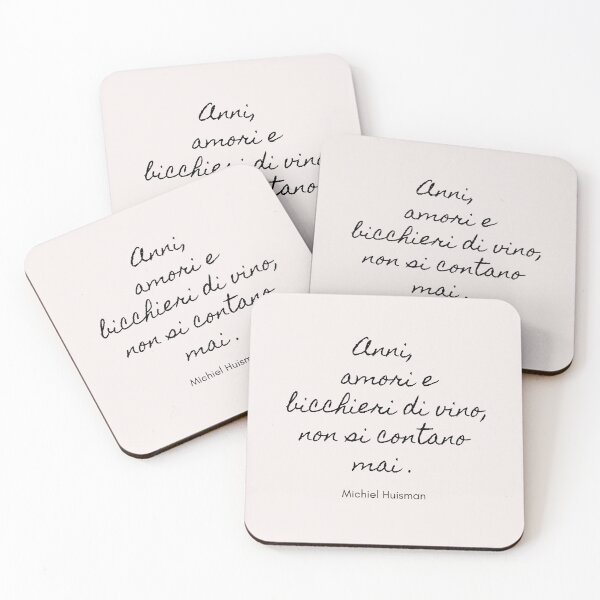 Anni,
amori e
bicchieri di vino,
contano
Anni,
amori e
bicchieri di vino,
non si contano
mai.
Anni,
amori e
bicchieri di vino,
non si contano
mai .
Michiel Huisman
Anni,
amori e
bicchieri di vino,
non si contano
mai .
Michiel Huisman